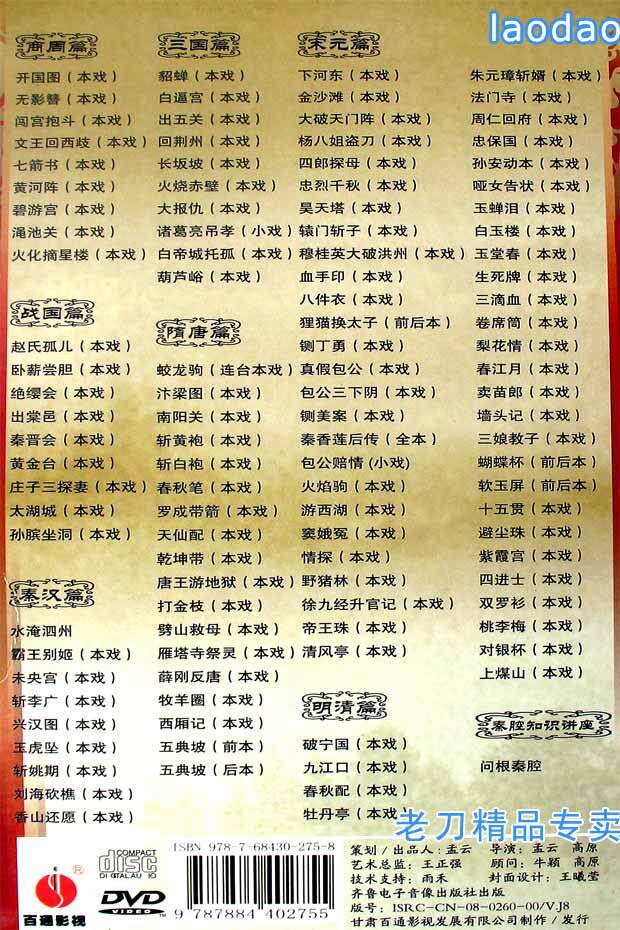 laodao
商周篇
开国图（本戏）
无影簪（本戏）
闯宫抱斗（本戏）
文王回西歧（本戏）
七箭书（本戏）
黄河阵（本戏）
碧游宫（本戏）
渑池关（本戏）
火化摘星楼（本戏）
战国篇
赵氏孤儿（本戏）
卧薪尝胆（本戏）
绝缨会（本戏）
出棠邑（本戏）
秦晋会（本戏）
黄金台（本戏）
庄子三探妻（本戏）
太湖城（本戏）
孙膑坐洞（本戏）
秦汉篇
水淹泗州
霸王别姬（本戏）
未央宫（本戏）
斩李广（本戏）
兴汉图（本戏）
玉虎坠（本戏）
斩姚期（本戏）
刘海砍樵（本戏）
香山还愿（本戏）
三国篇
貂蝉（本戏）
白逼宫（本戏）
出五关（本戏）
回荆州（本戏）
长坂坡（本戏）
火烧赤壁（本戏）
大报仇（本戏）
诸葛亮吊孝（小戏）
白帝城托孤（本戏）
葫芦峪（本戏）
隋唐篇
蛟龙驹（连台本戏）
汴梁图（本戏）
南阳关（本戏）
斩黄袍（本戏）
斩白袍（本戏）
春秋笔（本戏）
罗成带箭（本戏）
天仙配（本戏）
乾坤带（本戏）
唐王游地狱（本戏）
打金枝（本戏）
劈山救母（本戏）
雁塔寺祭灵（本戏）
薛刚反唐（本戏）
牧羊圈（本戏）
西厢记（本戏）
五典坡（前本）
五典坡（后本）
宋元篇
下河东（本戏）
金沙滩（本戏）
大破天门阵（本戏）
杨八姐盗刀（本戏）
四郎探母（本戏）
忠烈千秋（本戏）
昊天塔（本戏）
辕门斩子（本戏）
穆桂英大破洪州（本戏）
血手印（本戏）
八件衣（本戏）
狸猫换太子（前后本）
铡丁勇（本戏）
真假包公（本戏）
包公三下阴（本戏）
铡美案（本戏）
秦香莲后传（全本）
包公赔情(小戏）
火焰驹（本戏）
游西湖（本戏）
窦娥冤（本戏）
情探（本戏）
野猪林（本戏）
徐九经升官记（本戏）
帝王珠（本戏）
清风亭（本戏）
明清篇
破宁国（本戏）
九江口（本戏）
春秋配（本戏）
牡丹亭（本戏）
朱元璋斩婿（本戏）
法门寺（本戏）
周仁回府（本戏）
忠保国（本戏）
孙安动本（本戏）
哑女告状（本戏）
玉蝉泪（本戏）
白玉楼（本戏）
玉堂春（本戏）
生死牌（本戏）
三滴血（本戏）
卷席筒（本戏）
梨花情（本戏）
春江月（本戏）
卖苗郎（本戏）
墙头记（本戏）
三娘教子（本戏）
蝴蝶杯（前后本）
软玉屏（前后本）
十五贯（本戏）
避尘珠（本戏）
紫霞宫（本戏）
四进士（本戏）
双罗衫（本戏）
桃李梅（本戏）
对银杯（本戏）
上煤山（本戏）
秦腔知识讲座
问根秦腔
老刀精品专卖
百通影视
®
COMPACT
disc
DIGITAL AUDIO
DVD
VIDEO
ISBN 978-7-68430-275-8
9 787884 402755
策划/出品人：孟云 导演：孟云 高原
艺术总监：王正强 顾问：牛颖 高原
技术支持：雨禾 封面设计：王曦莹
齐鲁电子音像出版社出版
版号：ISRC-CN-08-0260-00/V.J8
甘肃百通影视发展有限公司制作/发行